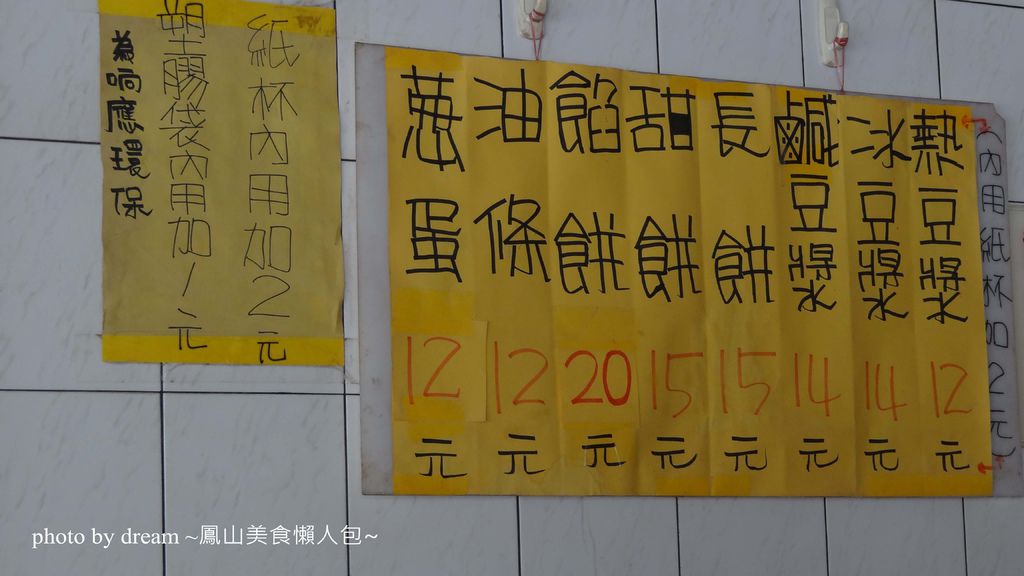 熱豆漿12元
冰豆漿14元
鹹豆漿14元
長餅15元
甜餅15元
餡餅20元
油條12元
蔥蛋12元
(內用紙杯加2元)
紙杯內用加2元
塑膠袋內用加1元
為响應環保
photo by dream ~鳳山美食懶人包~